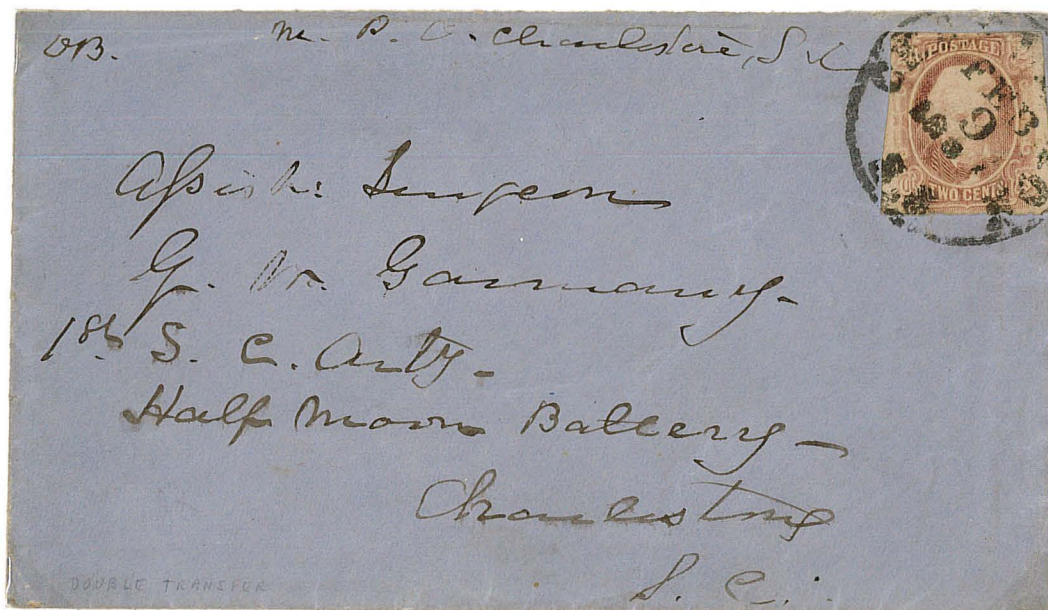 OB. M. P. O. Charleston, S. C.
POSTAGE
FEB
9
TWO CENTS
Assist: Surgeon
G. W. Garmany-
1st S. C. Arty-
Half Moon Battery-
Charleston
S. C.
DOUBLE TRANSFER